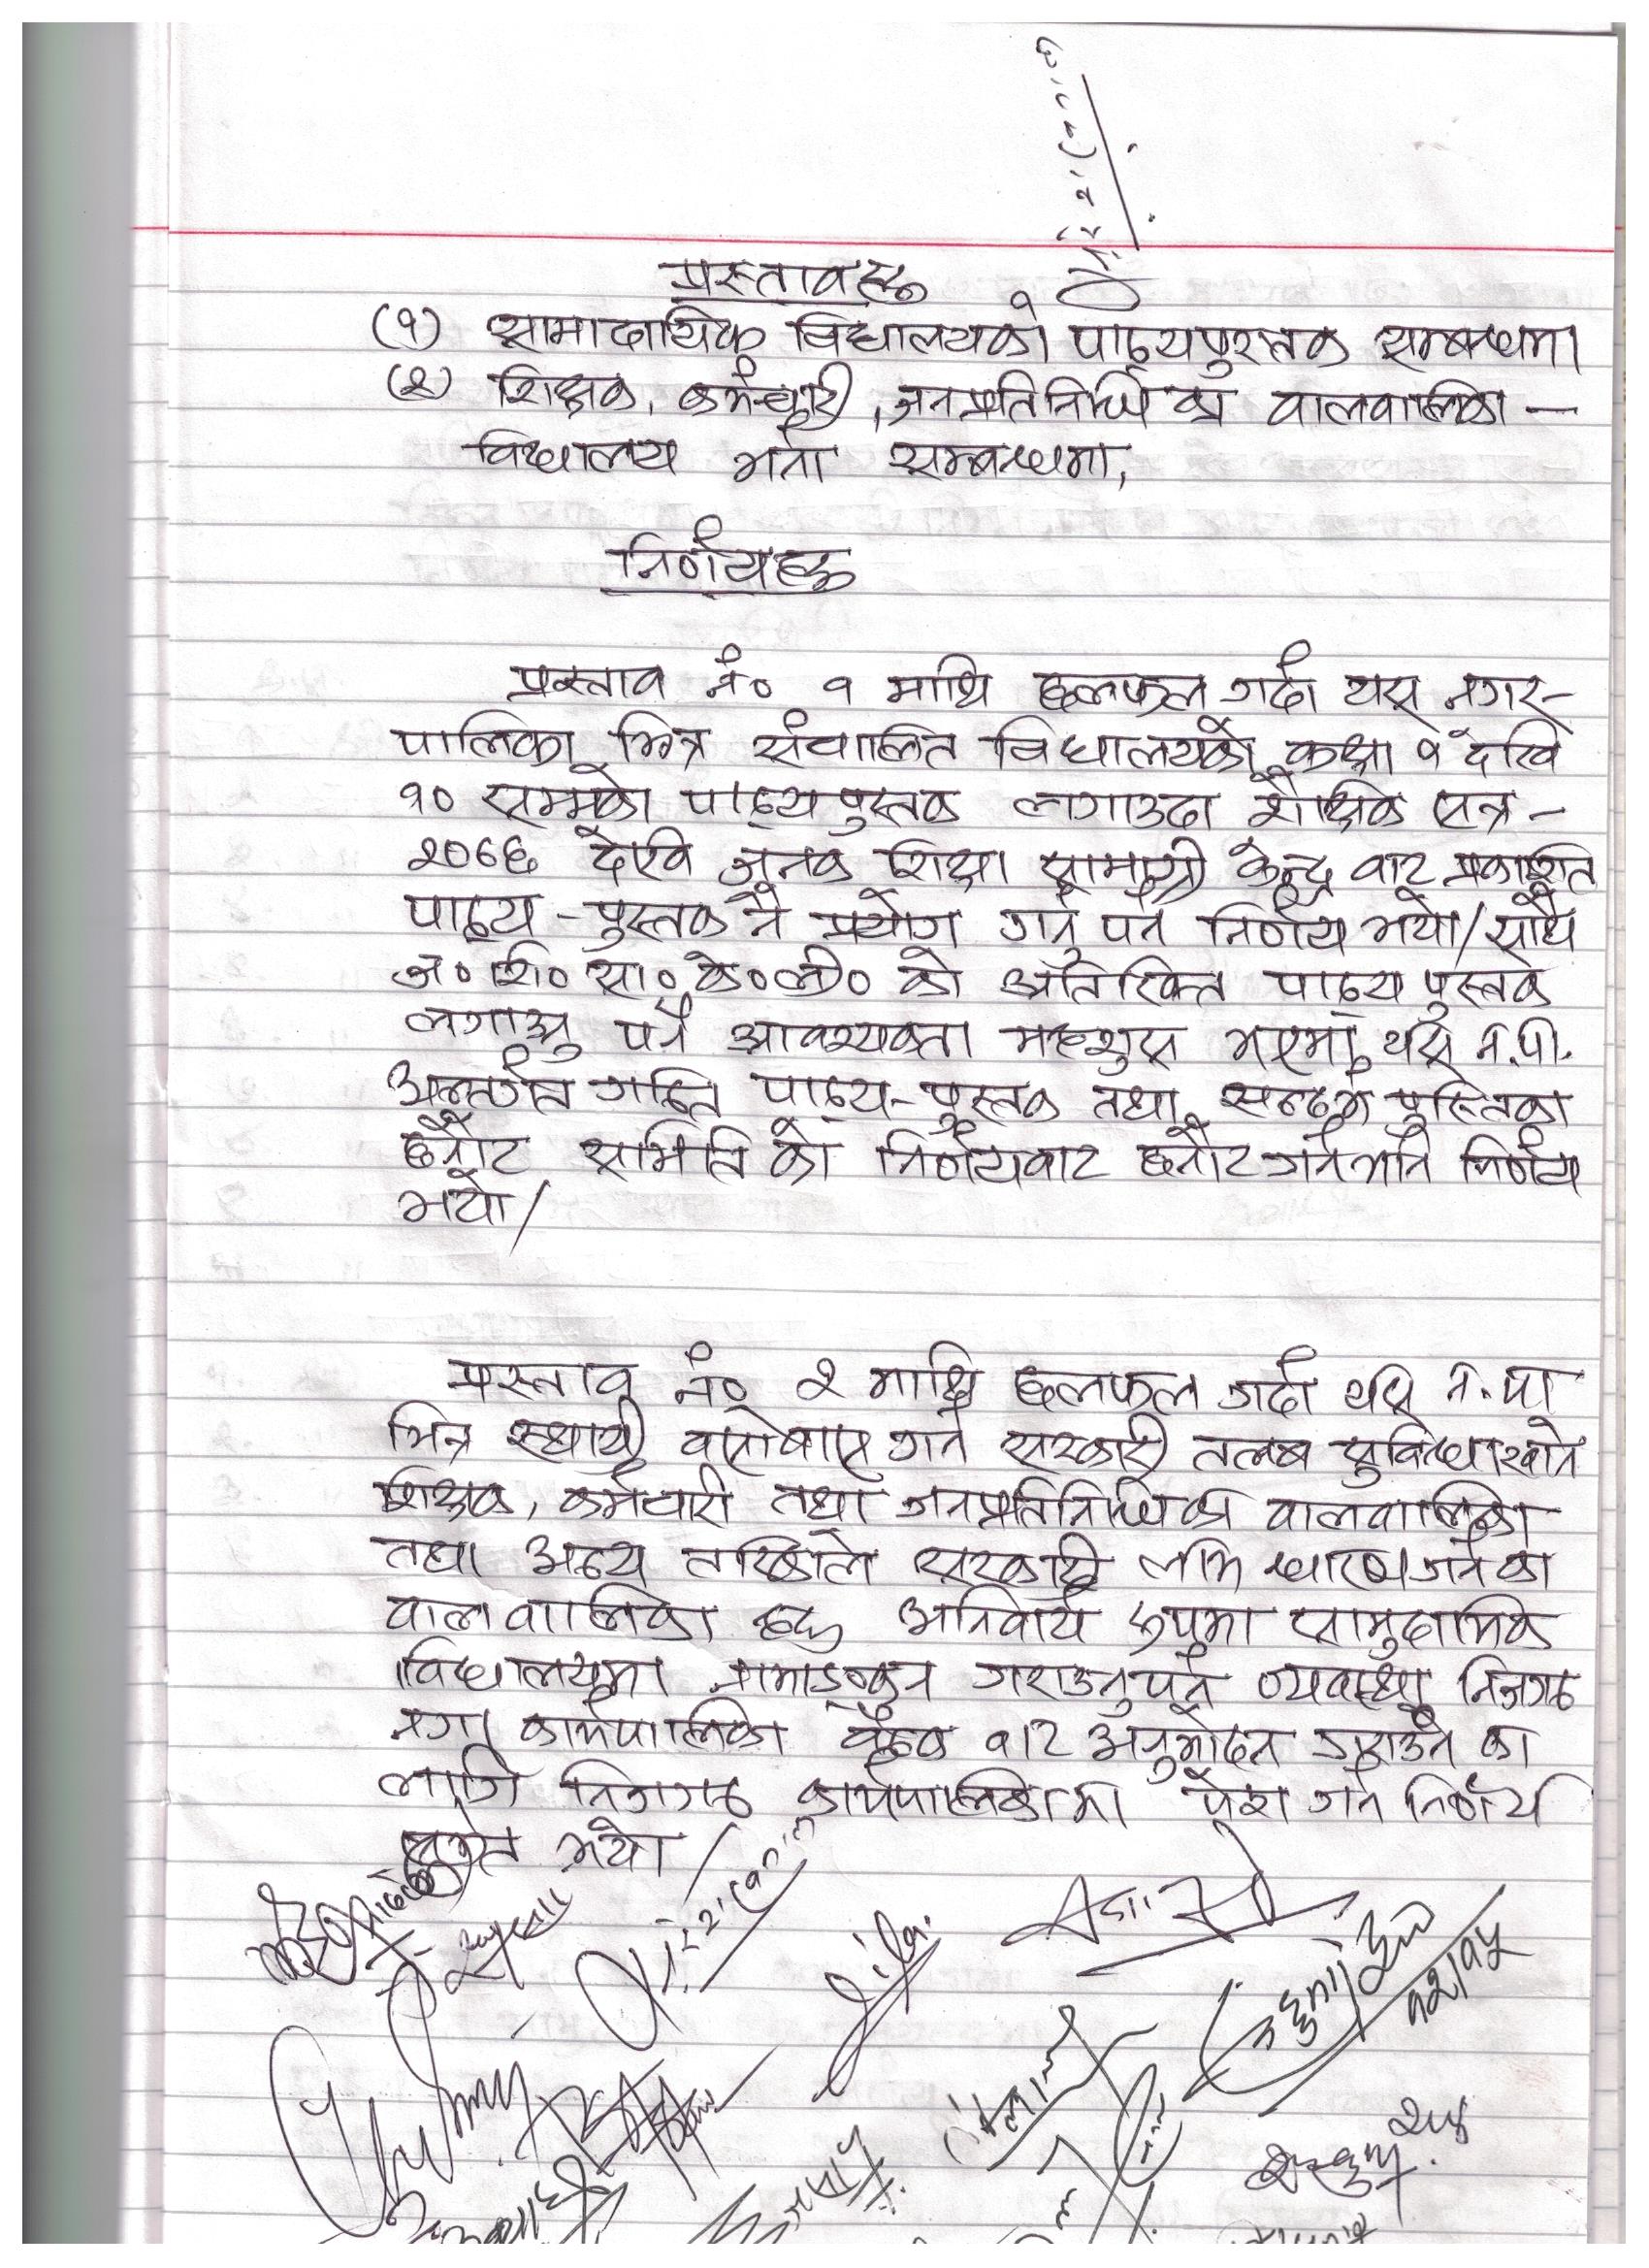 प्रस्तावहरू
(१) सामादायिक विद्यालयको पाठ्यपुस्तक सम्बन्धमा
(२) शिक्षक, कर्मचारी, जनप्रतिनिधिका वालवालिका –
विद्यालय भर्ना सम्बन्धमा,
निर्णयहरू
प्रस्ताव नं० १ माथि छलफल गर्दा यस नगर-
पालिका भित्र संचालित विद्यालयको कक्षा १ देखि
१० सम्मको पाठ्यपुस्तक लगाउदा शैक्षिक सत्र –
२०७६ देखि जनक शिक्षा सामाग्री केन्द्र वाट प्रकाशित
पाठ्य-पुस्तक नै प्रयोग गर्नु पर्ने निर्णय भयो/साथै
ज० शि० सा० के० ली० को अतिरिक्त पाठ्य पुस्तक
लगाउनु पर्ने आवश्यकता महशुस भएमा यस न.पा.
अन्तर्गत गठित पाठ्य-पुस्तक तथा सन्दर्भ पुस्तिका
छनौट समिति को निर्णयवाट छनौट गर्ने भनि निर्णय
भयो/
प्रस्ताव नं० २ माथि छलफल गर्दा यस न.पा
भित्र स्थायी वसोबास गर्ने सरकारी तलब सुविधा खाने
शिक्षक, कर्मचारी तथा जनप्रतिनिधिका वालवालिका
तथा अन्य तरिकाले सरकारी लाभ धारण गर्नेका
वालवालिका हरु अनिवार्य रूपमा सामुदायिक
विद्यालयमा नामाङ्कन गराउनुपर्ने व्यवस्था निजगढ
नगर कार्यपालिका बैठक वाट अनुमोदन गराउने का
लागि निजगढ कार्यपालिकामा पेश गर्ने निर्णय
भयो